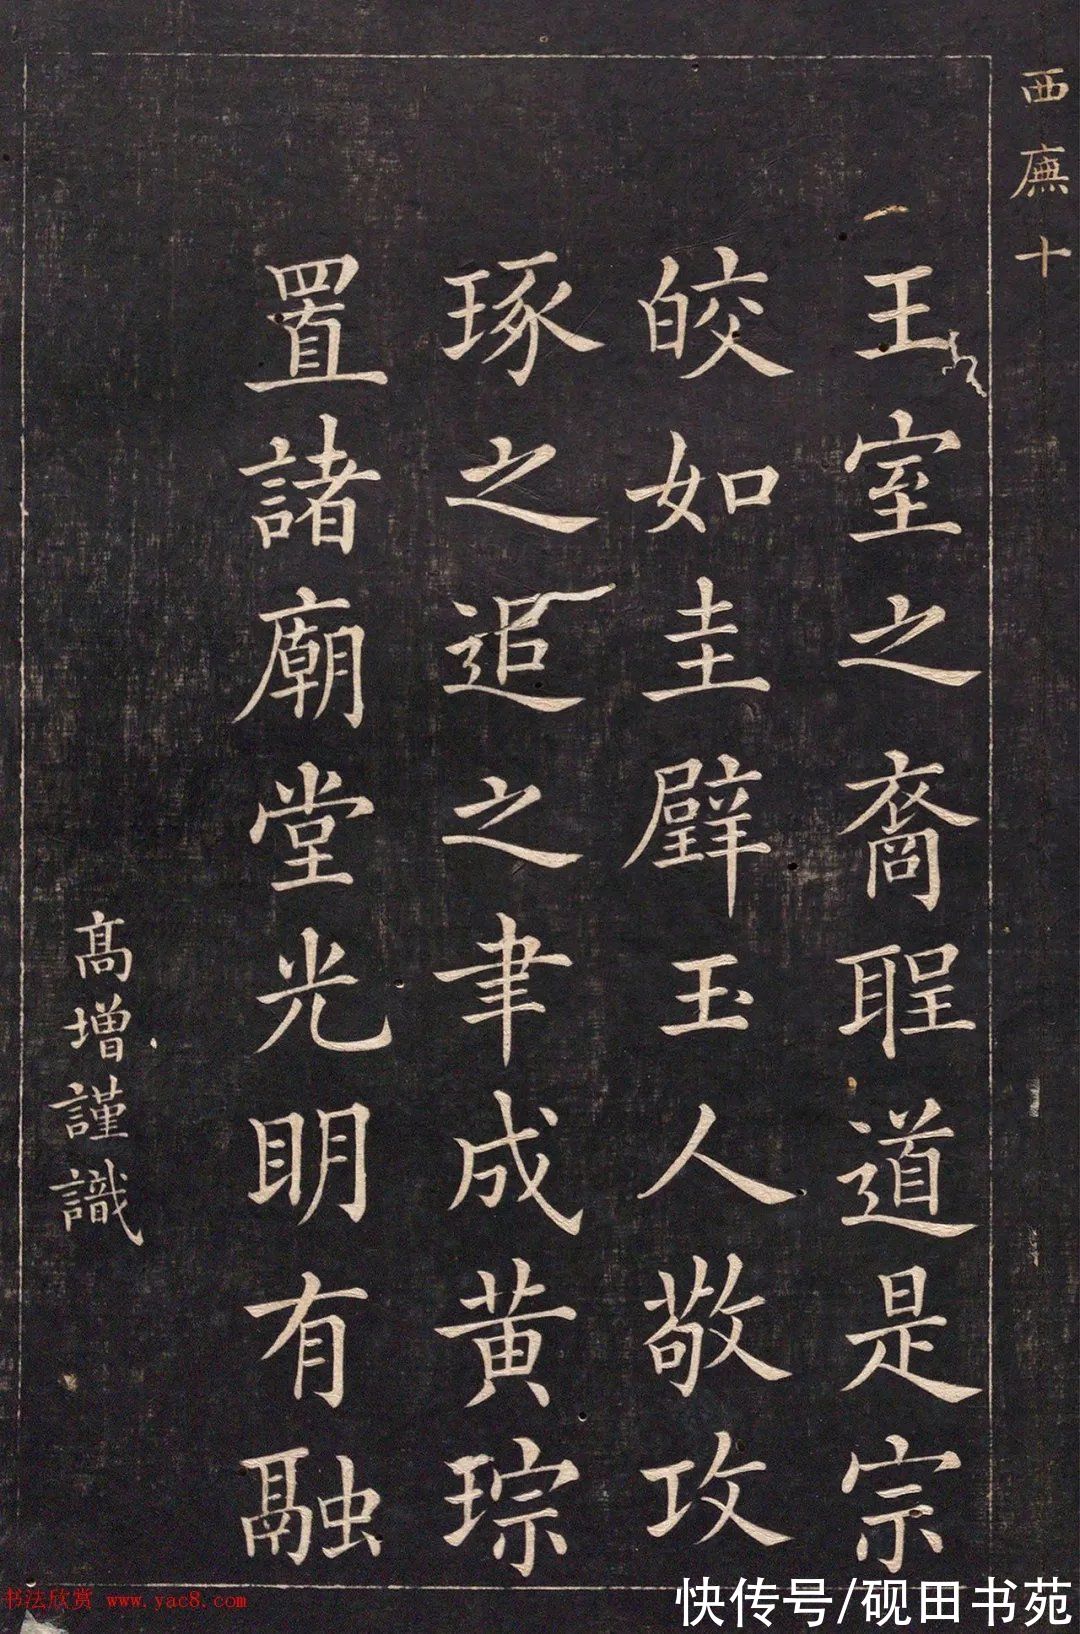 西廡十
王室之裔聖道是宗
皎如圭璧玉人敬攻
琢之追之聿成黄琮
置諸廟堂光明有融
高增謹識
书法欣赏 www.yac8.com
快传号/砚田书苑